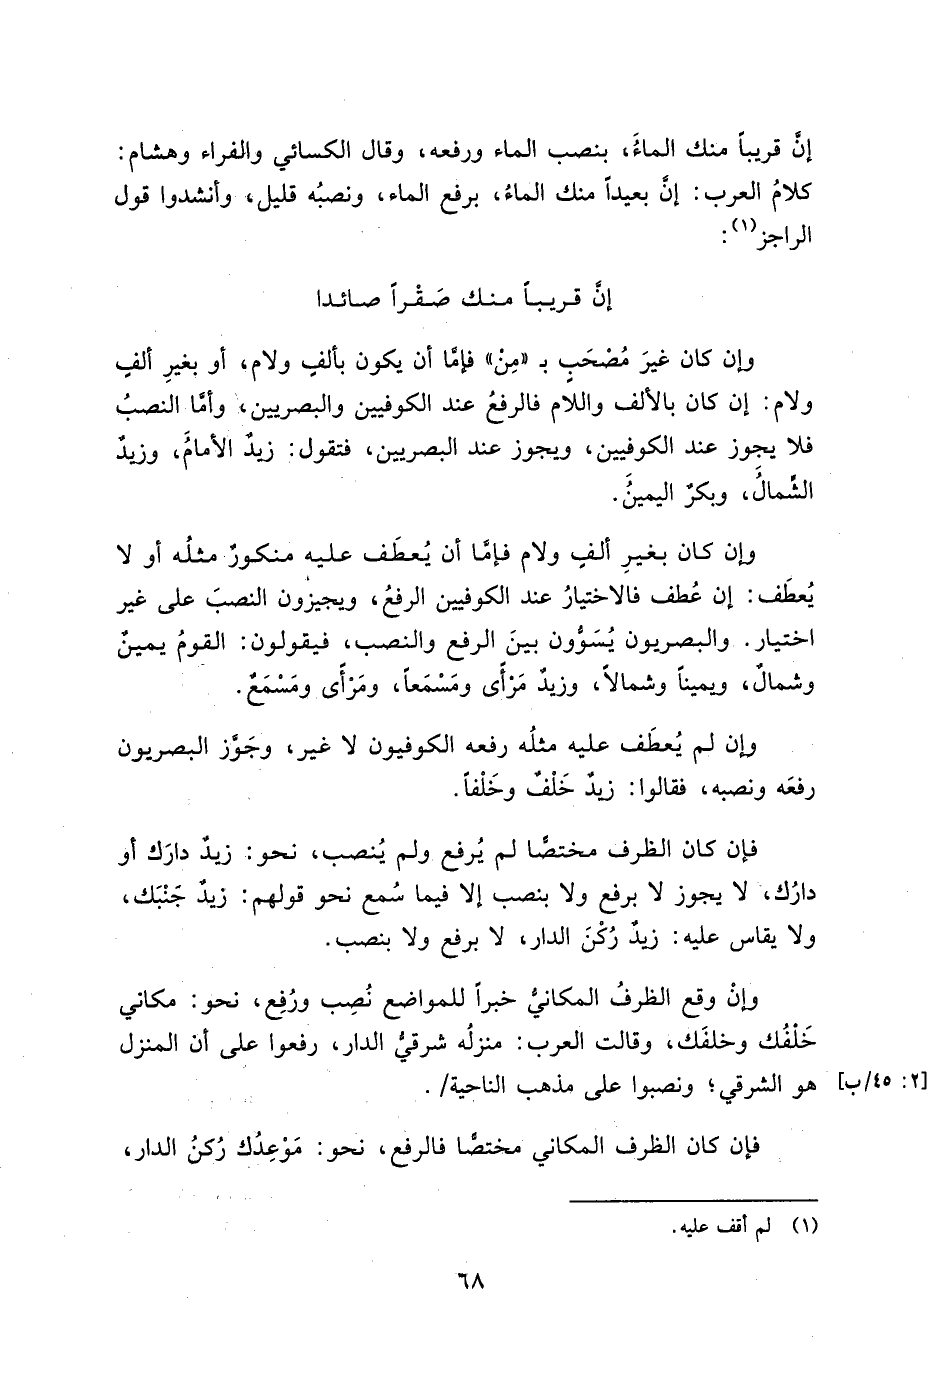 إنَّ قريباً منك الماءَ، بنصب الماء ورفعه، وقال الكسائي والفراء وهشام:
كلامُ العرب: إنَّ بعيداً منك الماءُ، برفع الماء، ونصبُه قليل، وأنشدوا قول
الراجز(١):
إنَّ قريباً منك صَقْراً صائدا
وإن كان غيرَ مُصْحَبٍ بـ «مِنْ» فإمَّا أن يكون بألفٍ ولام، أو بغيرِ ألفٍ
ولام: إن كان بالألف واللام فالرفعُ عند الكوفيين والبصريين، وأمَّا النصبُ
فلا يجوز عند الكوفيين، ويجوز عند البصريين، فتقول: زيدٌ الأمامَُ، وزيدٌ
الشَّمالَُ، وبكرٌ اليمينَُ.
وإن كان بغيرِ ألفٍ ولام فإمَّا أن يُعطَف عليه منكورٌ مثلُه أو لا
يُعطَف: إن عُطف فالاختيارُ عند الكوفيين الرفعُ، ويجيزون النصبَ على غير
اختيار. والبصريون يُسَوُّون بينَ الرفع والنصب، فيقولون: القومُ يمينٌ
وشمالٌ، ويميناً وشمالاً، وزيدٌ مَرْأًى ومَسْمَعاً، ومَرْأًى ومَسْمَعٌ.
وإن لم يُعطَف عليه مثلُه رفعه الكوفيون لا غير، وجَوَّز البصريون
رفعَه ونصبه، فقالوا: زيدٌ خَلْفٌ وخَلْفاً.
فإن كان الظرف مختصًّا لم يُرفع ولم يُنصب، نحو: زيدٌ دارَك أو
دارُك، لا يجوز لا برفع ولا بنصب إلا فيما سُمع نحو قولهم: زيدٌ جَنْبَك،
ولا يقاس عليه: زيدٌ رُكْنَ الدار، لا برفع ولا بنصب.
وإنْ وقع الظرفُ المكانيُّ خبراً للمواضع نُصِب ورُفِع، نحو: مكاني
خَلْفُك وخلفَك، وقالت العرب: منزلُه شرقيُّ الدار، رفعوا على أن المنزل
هو الشرقي؛ ونصبوا على مذهب الناحية/. [٢: ٤٥/ب]
فإن كان الظرف المكاني مختصًّا فالرفع، نحو: مَوْعِدُك رُكنُ الدار،
(١) لم أقف عليه.
٦٨